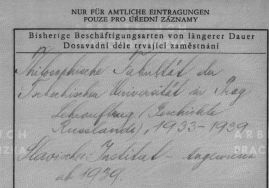 NUR FÜR AMTLICHE EINTRAGUNGEN
POUZE PRO ÚŘEDNÍ ZÁZNAMY
Bisherige Beschäftigungsarten von längerer Dauer
Dosavadní déle trvající zaměstnání
Philosophische Fakultät der
Tschechischen Universität in Prag
Lehrauftrag (Geschichte
Russlands), 1933-1939
Slavisches Institut -
ab 1939.